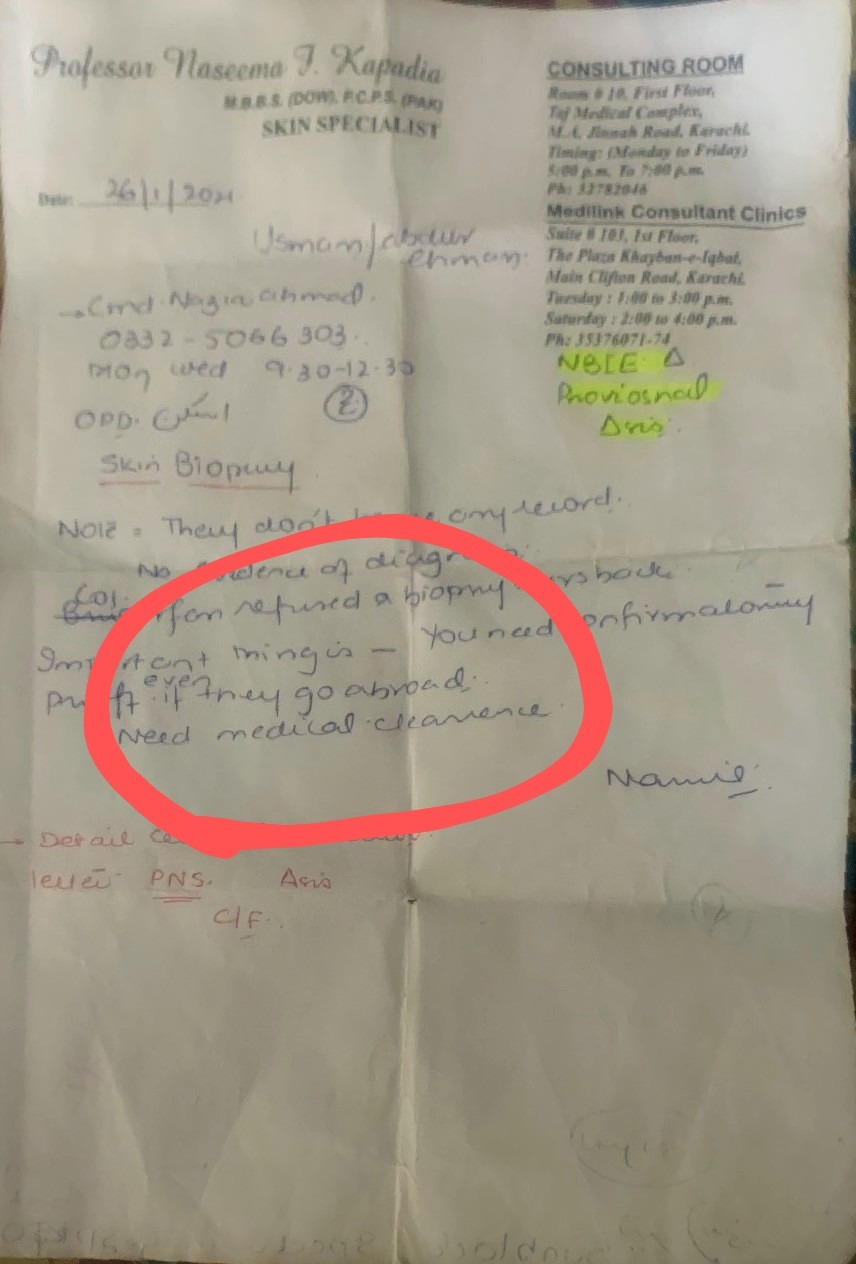 Professor Naseema F. Kapadia
M.B.B.S. (DOW), F.C.P.S. (PAK)
SKIN SPECIALIST
CONSULTING ROOM
Room # 10, First Floor,
Taj Medical Complex,
M.A. Jinnah Road, Karachi.
Timing: (Monday to Friday)
5:00 p.m. To 7:00 p.m.
Ph: 32782046
Medilink Consultant Clinics
Suite # 103, 1st Floor,
The Plaza Khayban-e-Iqbal,
Main Clifton Road, Karachi.
Tuesday : 1:00 to 3:00 p.m.
Saturday : 2:00 to 4:00 p.m.
Ph: 35376071-74
NBIE Δ
Proviosnal
Date: 26/1/2021
Usman/abdur
ehman.
→ Cmd. Nazia ahmad.
0332-5066303.
Mon wed 9.30-12.30
OPD. اسکن
2
Skin Biopsy
NOTE = They don't any record.
No of
refused a biopsy back
Important thing is - You need confirmatory
even if they go abroad.
Need medical clearence.
→ Detail
letter PNS.
C/F.